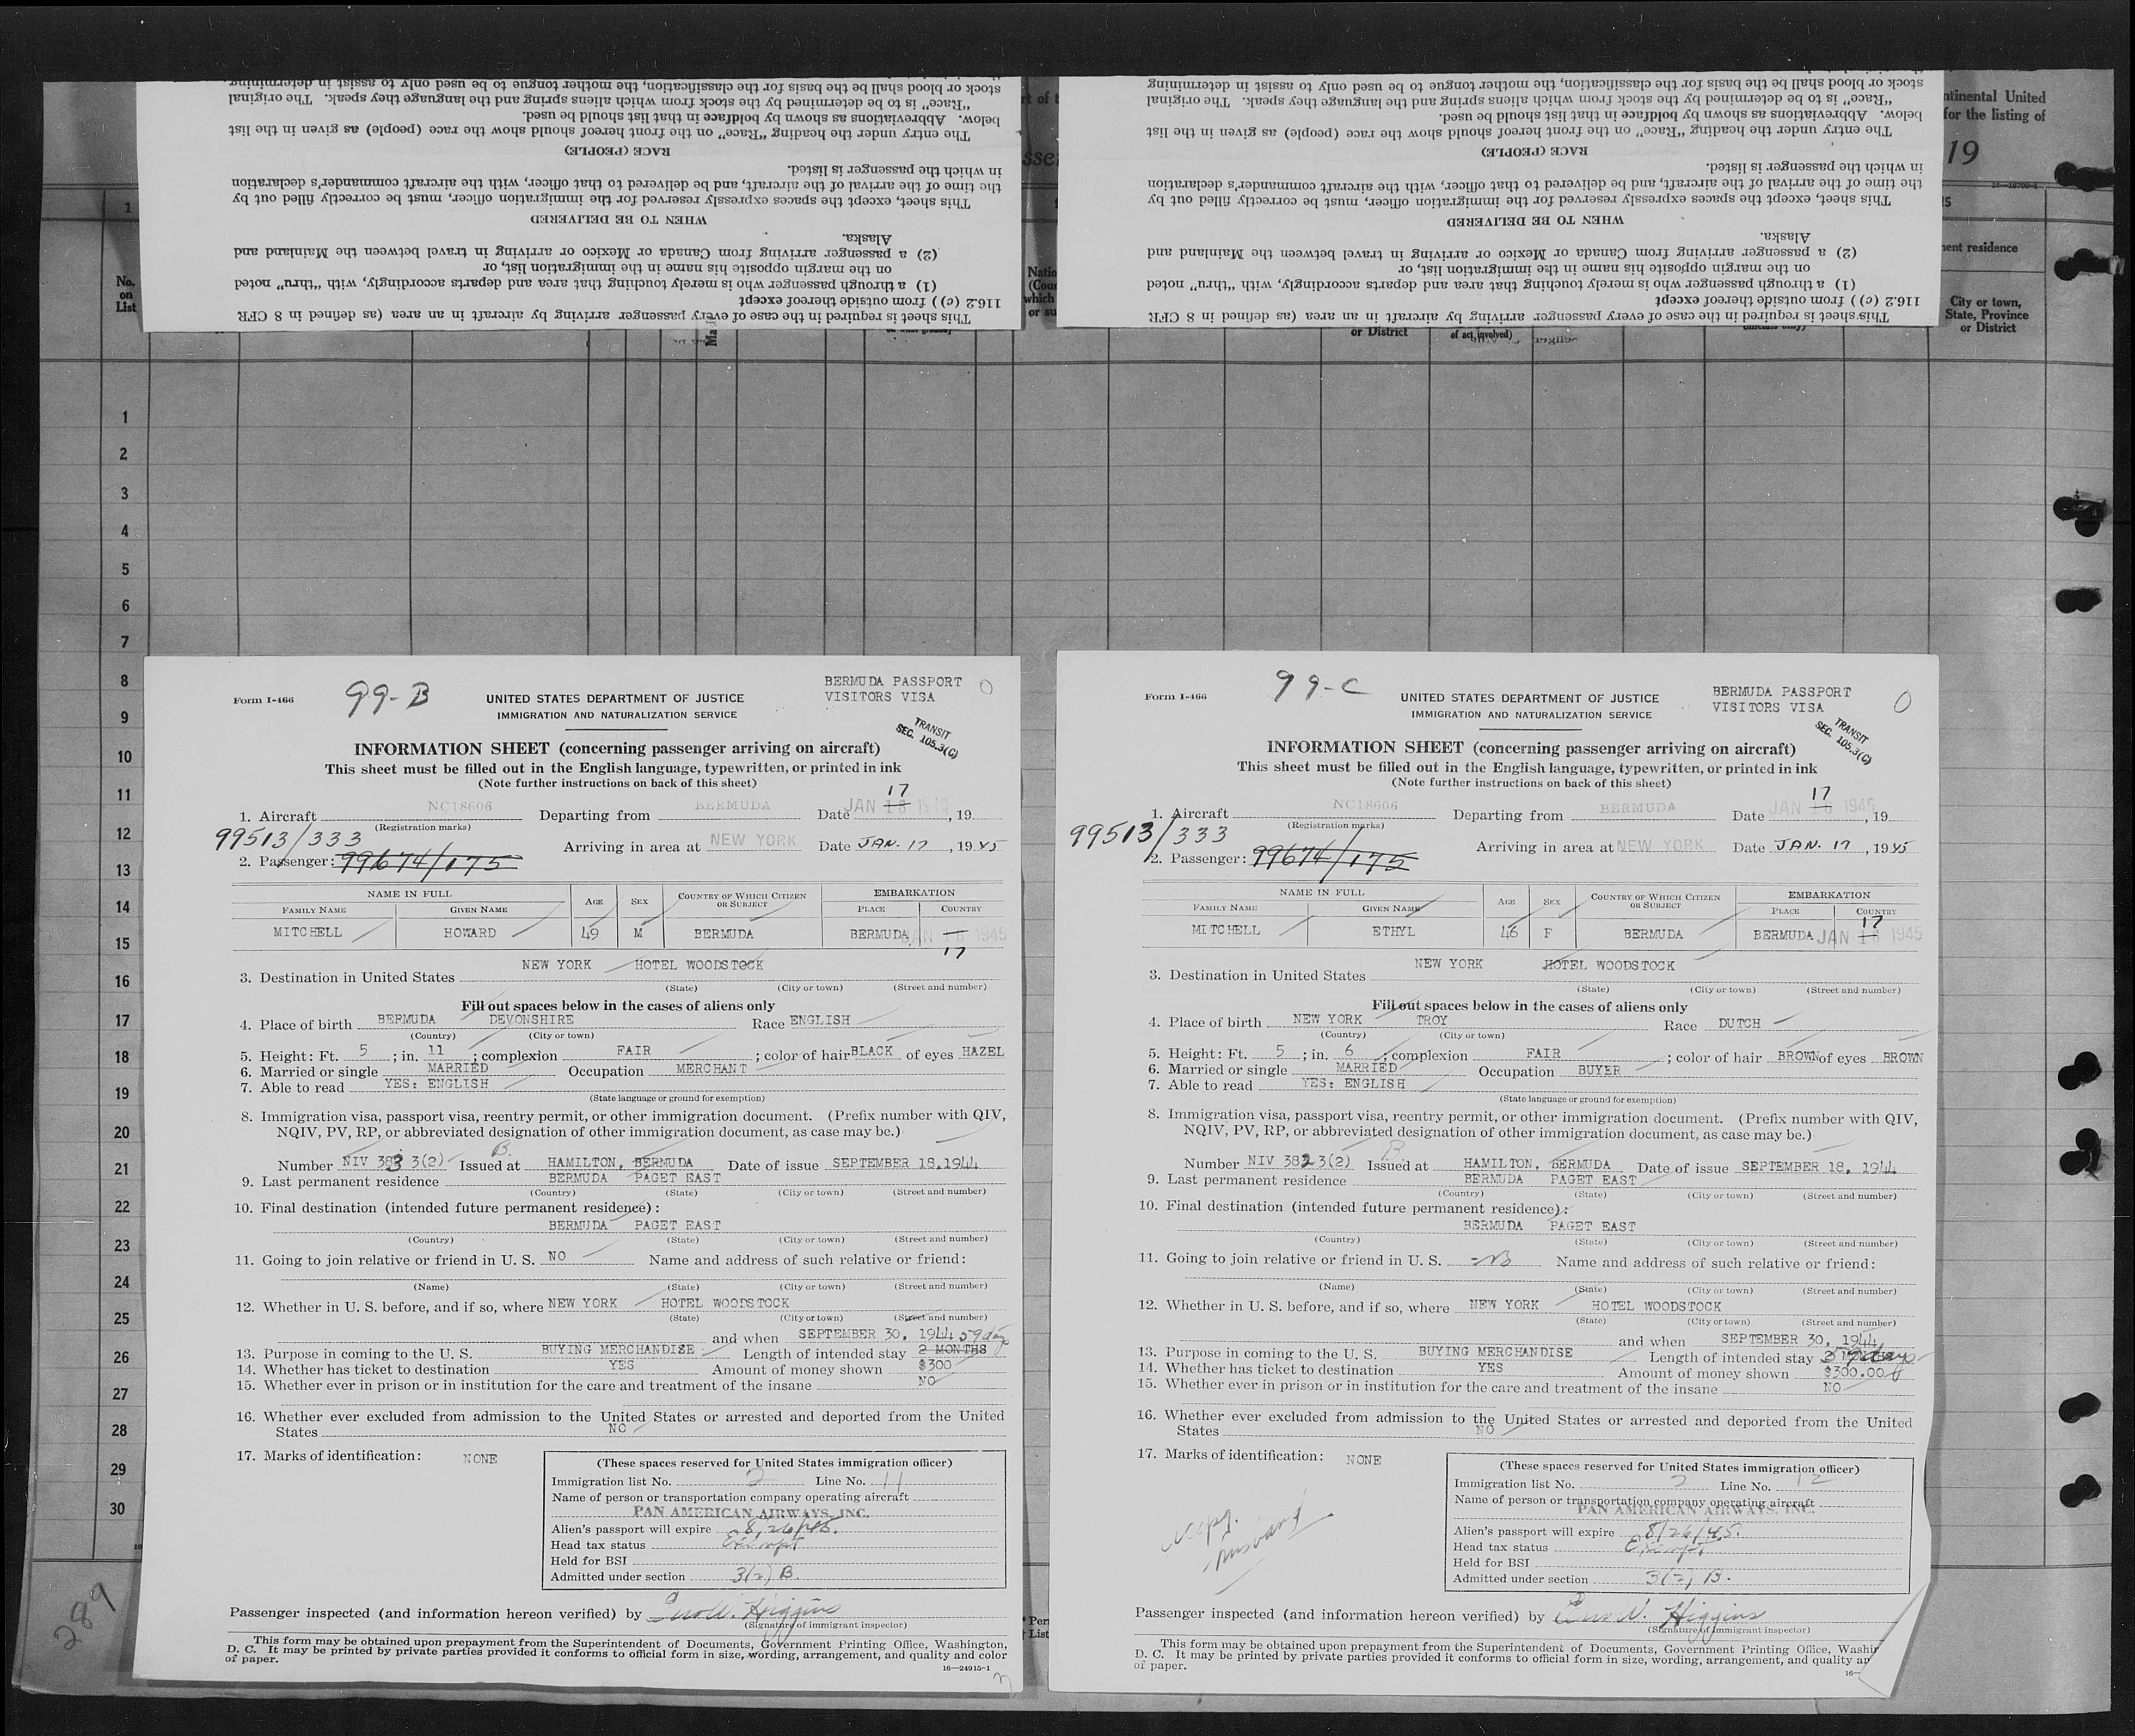 stock or blood shall be the basis for the classification, the mother tongue to be used only to assist in determining
"Race" is to be determined by the stock from which aliens spring and the language they speak. The original
below. Abbreviations as shown by boldface in that list should be used.
The entry under the heading "Race" on the front hereof should show the race (people) as given in the list
RACE (PEOPLE)
in which the passenger is listed.
the time of the arrival of the aircraft, and be delivered to that officer, with the aircraft commander's declaration
This sheet, except the spaces expressly reserved for the immigration officer, must be correctly filled out by
WHEN TO BE DELIVERED
Alaska.
(2) a passenger arriving from Canada or Mexico or arriving in travel between the Mainland and
on the margin opposite his name in the immigration list, or
(1) a through passenger who is merely touching that area and departs accordingly, with "thru" noted
116.2 (c) ) from outside thereof except
This sheet is required in the case of every passenger arriving by aircraft in an area (as defined in 8 CFR
stock or blood shall be the basis for the classification, the mother tongue to be used only to assist in determining
"Race" is to be determined by the stock from which aliens spring and the language they speak. The original
below. Abbreviations as shown by boldface in that list should be used.
The entry under the heading "Race" on the front hereof should show the race (people) as given in the list
RACE (PEOPLE)
in which the passenger is listed.
the time of the arrival of the aircraft, and be delivered to that officer, with the aircraft commander's declaration
This sheet, except the spaces expressly reserved for the immigration officer, must be correctly filled out by
WHEN TO BE DELIVERED
Alaska.
(2) a passenger arriving from Canada or Mexico or arriving in travel between the Mainland and
on the margin opposite his name in the immigration list, or
(1) a through passenger who is merely touching that area and departs accordingly, with "thru" noted
116.2 (c) ) from outside thereof except
This sheet is required in the case of every passenger arriving by aircraft in an area (as defined in 8 CFR
ntinental United
for the listing of
19
ent residence
City or town,
State, Province
or District
1
No.
on
List
or District
of act involved)
1
2
3
4
5
6
7
8
9
10
11
12
13
14
15
16
17
18
19
20
21
22
23
24
25
26
27
28
29
30
289
Form I-466
99-B
UNITED STATES DEPARTMENT OF JUSTICE
IMMIGRATION AND NATURALIZATION SERVICE
BERMUDA PASSPORT
VISITORS VISA
0
TRANSIT
SEC. 105.3(C)
INFORMATION SHEET (concerning passenger arriving on aircraft)
This sheet must be filled out in the English language, typewritten, or printed in ink
(Note further instructions on back of this sheet)
17
1. Aircraft NC18606 Departing from BERMUDA Date JAN 16 1945, 19
(Registration marks)
99513/333
Arriving in area at NEW YORK Date JAN. 17, 1945
2. Passenger: 99674/175
NAME IN FULL AGE SEX COUNTRY OF WHICH CITIZEN OR SUBJECT EMBARKATION
FAMILY NAME GIVEN NAME PLACE COUNTRY
MITCHELL HOWARD 49 M BERMUDA BERMUDA JAN 16 1945
17
3. Destination in United States NEW YORK HOTEL WOODSTOCK
(State) (City or town) (Street and number)
Fill out spaces below in the cases of aliens only
4. Place of birth BERMUDA DEVONSHIRE Race ENGLISH
(Country) (City or town)
5. Height: Ft. 5 ; in. 11 ; complexion FAIR ; color of hair BLACK of eyes HAZEL
6. Married or single MARRIED Occupation MERCHANT
7. Able to read YES: ENGLISH
(State language or ground for exemption)
8. Immigration visa, passport visa, reentry permit, or other immigration document. (Prefix number with QIV,
NQIV, PV, RP, or abbreviated designation of other immigration document, as case may be.)
B.
Number NIV 383 3(2) Issued at HAMILTON, BERMUDA Date of issue SEPTEMBER 18,1944
9. Last permanent residence BERMUDA PAGET EAST
(Country) (State) (City or town) (Street and number)
10. Final destination (intended future permanent residence):
BERMUDA PAGET EAST
(Country) (State) (City or town) (Street and number)
11. Going to join relative or friend in U. S. NO Name and address of such relative or friend:
(Name) (State) (City or town) (Street and number)
12. Whether in U. S. before, and if so, where NEW YORK HOTEL WOODSTOCK
(State) (City or town) (Street and number)
and when SEPTEMBER 30, 1944 59 days
13. Purpose in coming to the U. S. BUYING MERCHANDISE Length of intended stay 2 MONTHS
14. Whether has ticket to destination YES Amount of money shown $300
15. Whether ever in prison or in institution for the care and treatment of the insane NO
16. Whether ever excluded from admission to the United States or arrested and deported from the United
States NO
17. Marks of identification: NONE
(These spaces reserved for United States immigration officer)
Immigration list No. 2 Line No. 11
Name of person or transportation company operating aircraft
PAN AMERICAN AIRWAYS, INC.
Alien's passport will expire 8/26/45.
Head tax status Exempt
Held for BSI
Admitted under section 3(2) B.
Passenger inspected (and information hereon verified) by Higgins
(Signature of immigrant inspector)
This form may be obtained upon prepayment from the Superintendent of Documents, Government Printing Office, Washington,
D. C. It may be printed by private parties provided it conforms to official form in size, wording, arrangement, and quality and color
of paper.
16—24915-1
Form I-466
99-C
UNITED STATES DEPARTMENT OF JUSTICE
IMMIGRATION AND NATURALIZATION SERVICE
BERMUDA PASSPORT
VISITORS VISA
0
TRANSIT
SEC. 105.3(C)
INFORMATION SHEET (concerning passenger arriving on aircraft)
This sheet must be filled out in the English language, typewritten, or printed in ink
(Note further instructions on back of this sheet)
17
1. Aircraft NC18606 Departing from BERMUDA Date JAN 16 1945, 19
(Registration marks)
99513/333
Arriving in area at NEW YORK Date JAN. 17, 1945
2. Passenger: 99674/175
NAME IN FULL AGE SEX COUNTRY OF WHICH CITIZEN OR SUBJECT EMBARKATION
FAMILY NAME GIVEN NAME PLACE COUNTRY
17
MITCHELL ETHYL 46 F BERMUDA BERMUDA JAN 16 1945
3. Destination in United States NEW YORK HOTEL WOODSTOCK
(State) (City or town) (Street and number)
Fill out spaces below in the cases of aliens only
4. Place of birth NEW YORK TROY Race DUTCH
(Country) (City or town)
5. Height: Ft. 5 ; in. 6 ; complexion FAIR ; color of hair BROWN of eyes BROWN
6. Married or single MARRIED Occupation BUYER
7. Able to read YES: ENGLISH
(State language or ground for exemption)
8. Immigration visa, passport visa, reentry permit, or other immigration document. (Prefix number with QIV,
NQIV, PV, RP, or abbreviated designation of other immigration document, as case may be.)
B.
Number NIV 382 3(2) Issued at HAMILTON, BERMUDA Date of issue SEPTEMBER 18, 1944
9. Last permanent residence BERMUDA PAGET EAST
(Country) (State) (City or town) (Street and number)
10. Final destination (intended future permanent residence):
BERMUDA PAGET EAST
(Country) (State) (City or town) (Street and number)
11. Going to join relative or friend in U. S. No Name and address of such relative or friend:
(Name) (State) (City or town) (Street and number)
12. Whether in U. S. before, and if so, where NEW YORK HOTEL WOODSTOCK
(State) (City or town) (Street and number)
and when SEPTEMBER 30, 1944
13. Purpose in coming to the U. S. BUYING MERCHANDISE Length of intended stay 59 days
14. Whether has ticket to destination YES Amount of money shown $300.00
15. Whether ever in prison or in institution for the care and treatment of the insane NO
16. Whether ever excluded from admission to the United States or arrested and deported from the United
States NO
17. Marks of identification: NONE
accpy. husband
(These spaces reserved for United States immigration officer)
Immigration list No. 2 Line No. 12
Name of person or transportation company operating aircraft
PAN AMERICAN AIRWAYS, INC.
Alien's passport will expire 8/26/45.
Head tax status Exempt
Held for BSI
Admitted under section 3(2) B.
Passenger inspected (and information hereon verified) by Higgins
(Signature of immigrant inspector)
This form may be obtained upon prepayment from the Superintendent of Documents, Government Printing Office, Washin
D. C. It may be printed by private parties provided it conforms to official form in size, wording, arrangement, and quality an
of paper.
16—